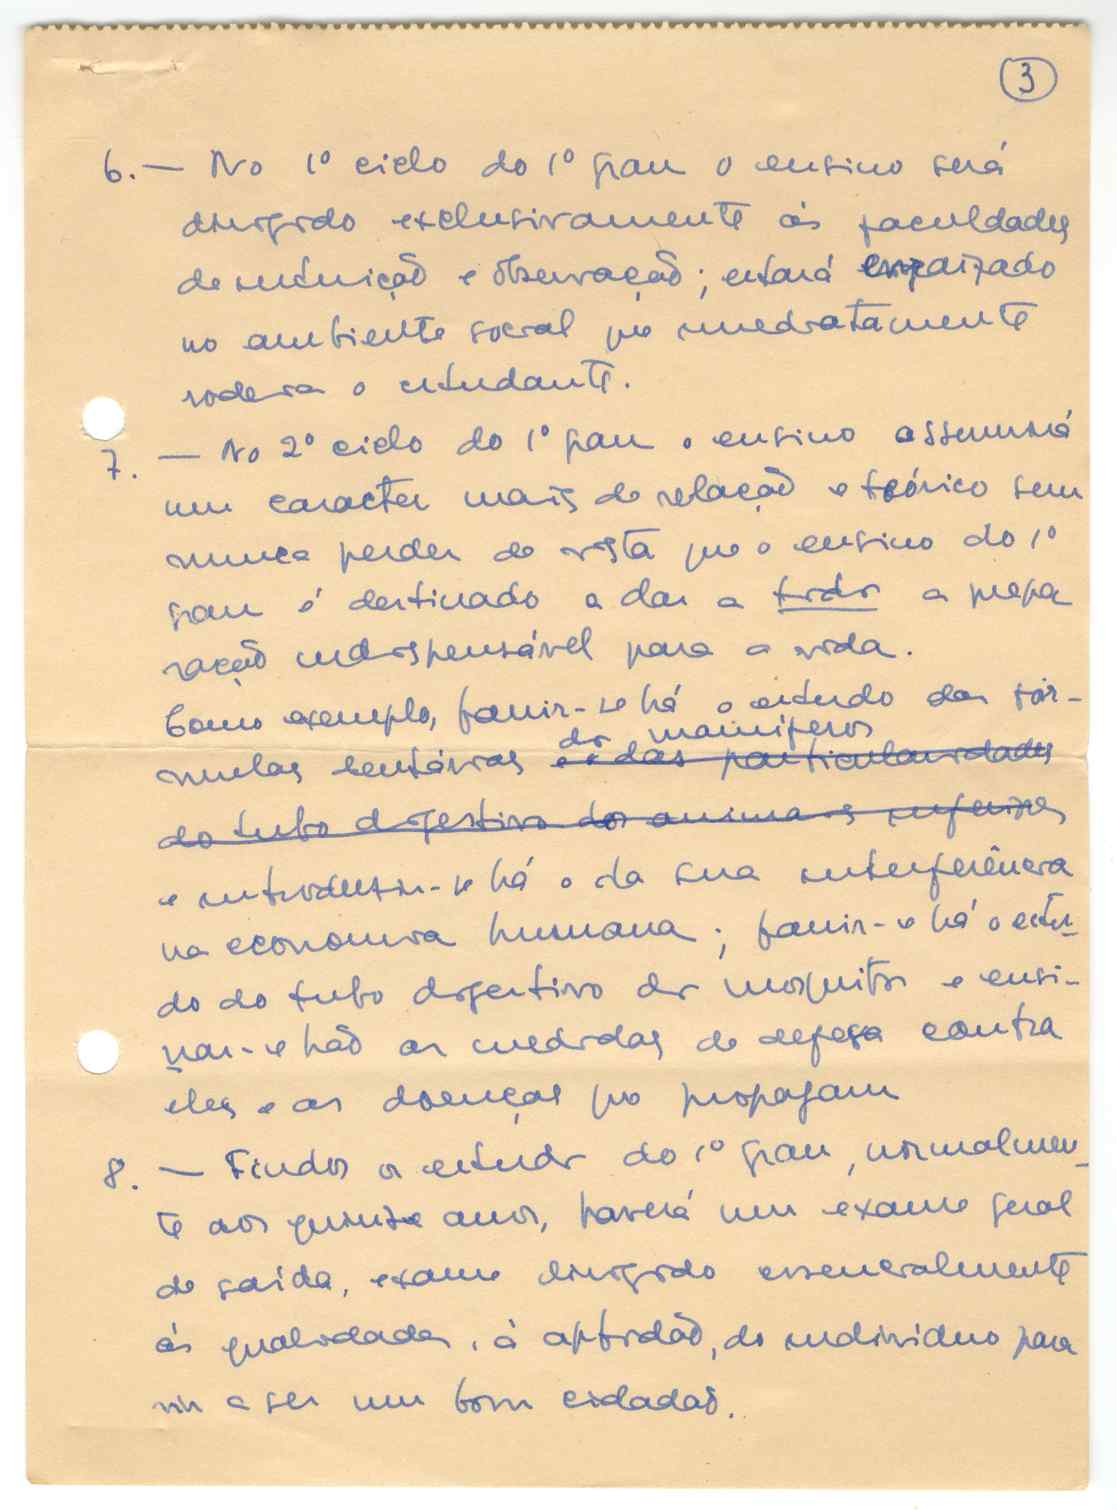 3
6. — No 1º ciclo do 1º grau o ensino será
dirigido exclusivamente às faculdades
de intuição e observação; estará enraizado
no ambiente social que imediatamente
rodeia o estudante.
7. — No 2º ciclo do 1º grau o ensino assumirá
um caracter mais de relação e teórico sem
nunca perder de vista que o ensino do 1º
grau é destinado a dar a todos a prepa
ração indispensável para a vida.
Como exemplo, banir-se há o estudo das fór-
dos mamíferos
mulas dentárias e das particularidades
do tubo digestivo dos animais inferiores
e introduzir-se há o da sua interferência
na economia humana; banir-se há o estu-
do do tubo digestivo dos mosquitos e ensi-
nar-se hão as medidas de defesa contra
eles e as doenças que propagam
8. — Findos os estudos do 1º grau, normalmen-
te aos quinze anos, haverá um exame geral
de saída, exame dirigido essencialmente
às qualidades, à aptidão, do indivíduo para
vir a ser um bom cidadão.